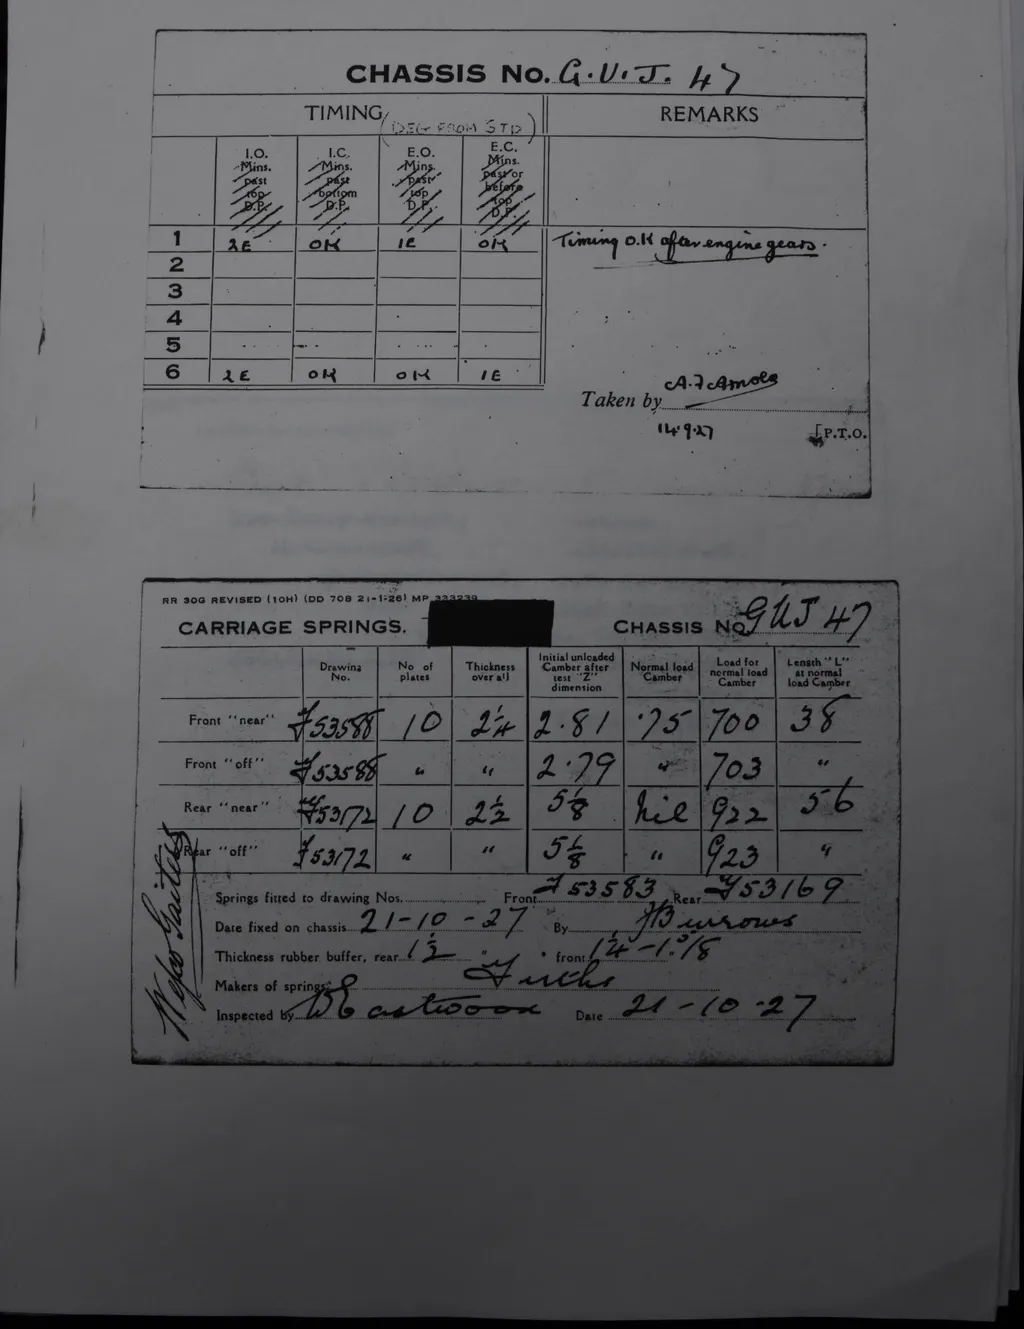 CHASSIS No. G.U.J. 47
TIMING (DEG FROM STD) REMARKS
I.O. Mins. past top D.P. I.C. Mins. past bottom D.P. E.O. Mins. past top D.P. E.C. Mins. past or before top D.P.
1 2E OK 1E OK Timing O.K after engine gears.
2
3
4
5
6 2E OK OK 1E
Taken by A.J
14.9.27 [P.T.O.
RR 30G REVISED (10H) (DD 708 21-1-26) MP 333239
CARRIAGE SPRINGS. CHASSIS No GUJ 47
Drawing No. No of plates Thickness over all Initial unloaded Camber after test "Z" dimension Normal load Camber Load for normal load Camber Length "L" at normal load Camber
Front "near" F53588 10 2¼ 2.81 .75 700 38
Front "off" F53588 " " 2.79 " 703 "
Rear "near" F53172 10 2½ 5⅛ Nil 922 56
Rear "off" F53172 " " 5⅛ " 923 "
Springs fitted to drawing Nos. Front F53583 Rear F53169
Date fixed on chassis 21-10-27 By Burrows
Thickness rubber buffer, rear 1½ " " front
Makers of springs Firths
Inspected by Eastwood Date 21-10-27
Wefco Gaiters